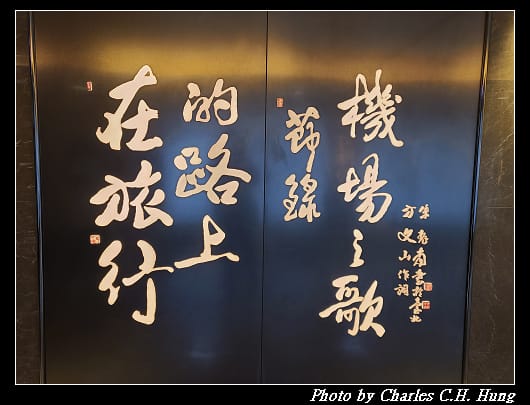 在旅行
的路上
節錄
機場之歌
方文山作詞
朱振南書於臺北
Photo by Charles C.H. Hung